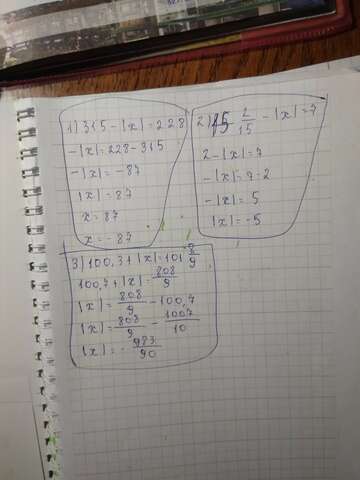 1) 315 - |x| = 228
-|x| = 228 - 315
-|x| = -87
|x| = 87
x = 87
x = -87
2) 15 2/15 - |x| = 7
2 - |x| = 7
-|x| = 7 - 2
-|x| = 5
|x| = -5
3) 100,3 + |x| = 101 8/9
100,7 + |x| = 808/9
|x| = 808/9 - 100,7
|x| = 808/9 - 1007/10
|x| = - 983/90